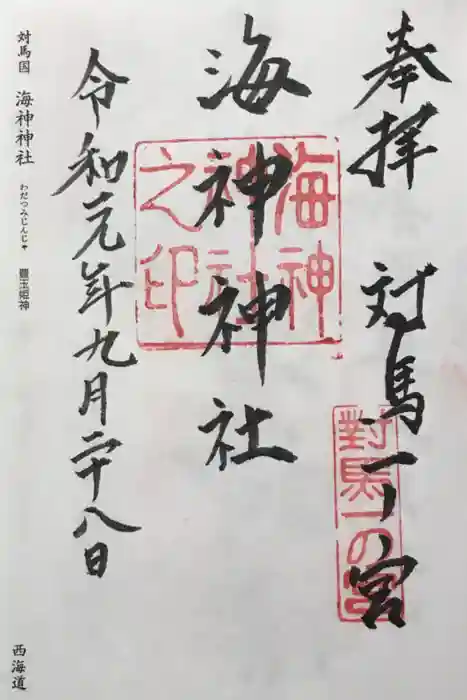 奉拝 対馬一ノ宮
對馬一の宮
海神神社
海神神社之印
令和元年九月二十八日
対馬国 海神神社 わだつみじんじゃ 豊玉姫神
西海道